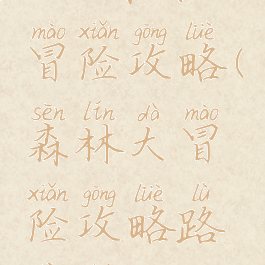 mào xiǎn gōng lüè
冒险攻略(
sēn lín dà mào
森林大冒
xiǎn gōng lüè lù
险攻略路